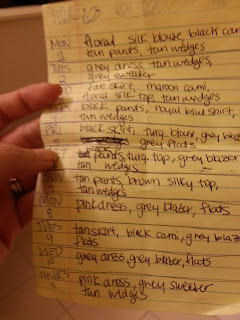 MON floral silk blouse black cami
2 tan pants, tan wedges
TUES grey dress, tan wedges,
grey sweater
WED tan skirt, maroon cami,
floral silk top tan wedges
black pants, royal blue shirt,
wedges
FRI black skirt, turq. blazer, grey
grey flats
pants, turq. top, grey blazer
tan wedges
SUN tan pants, brown silky top,
7 tan wedges
MON pink dress, grey blazer, flats
8
TUES tan skirt, black cami, grey blazer
9 flats
WED grey dress, grey blazer, flats
10
THURS pink dress, grey sweater
11 tan wedges